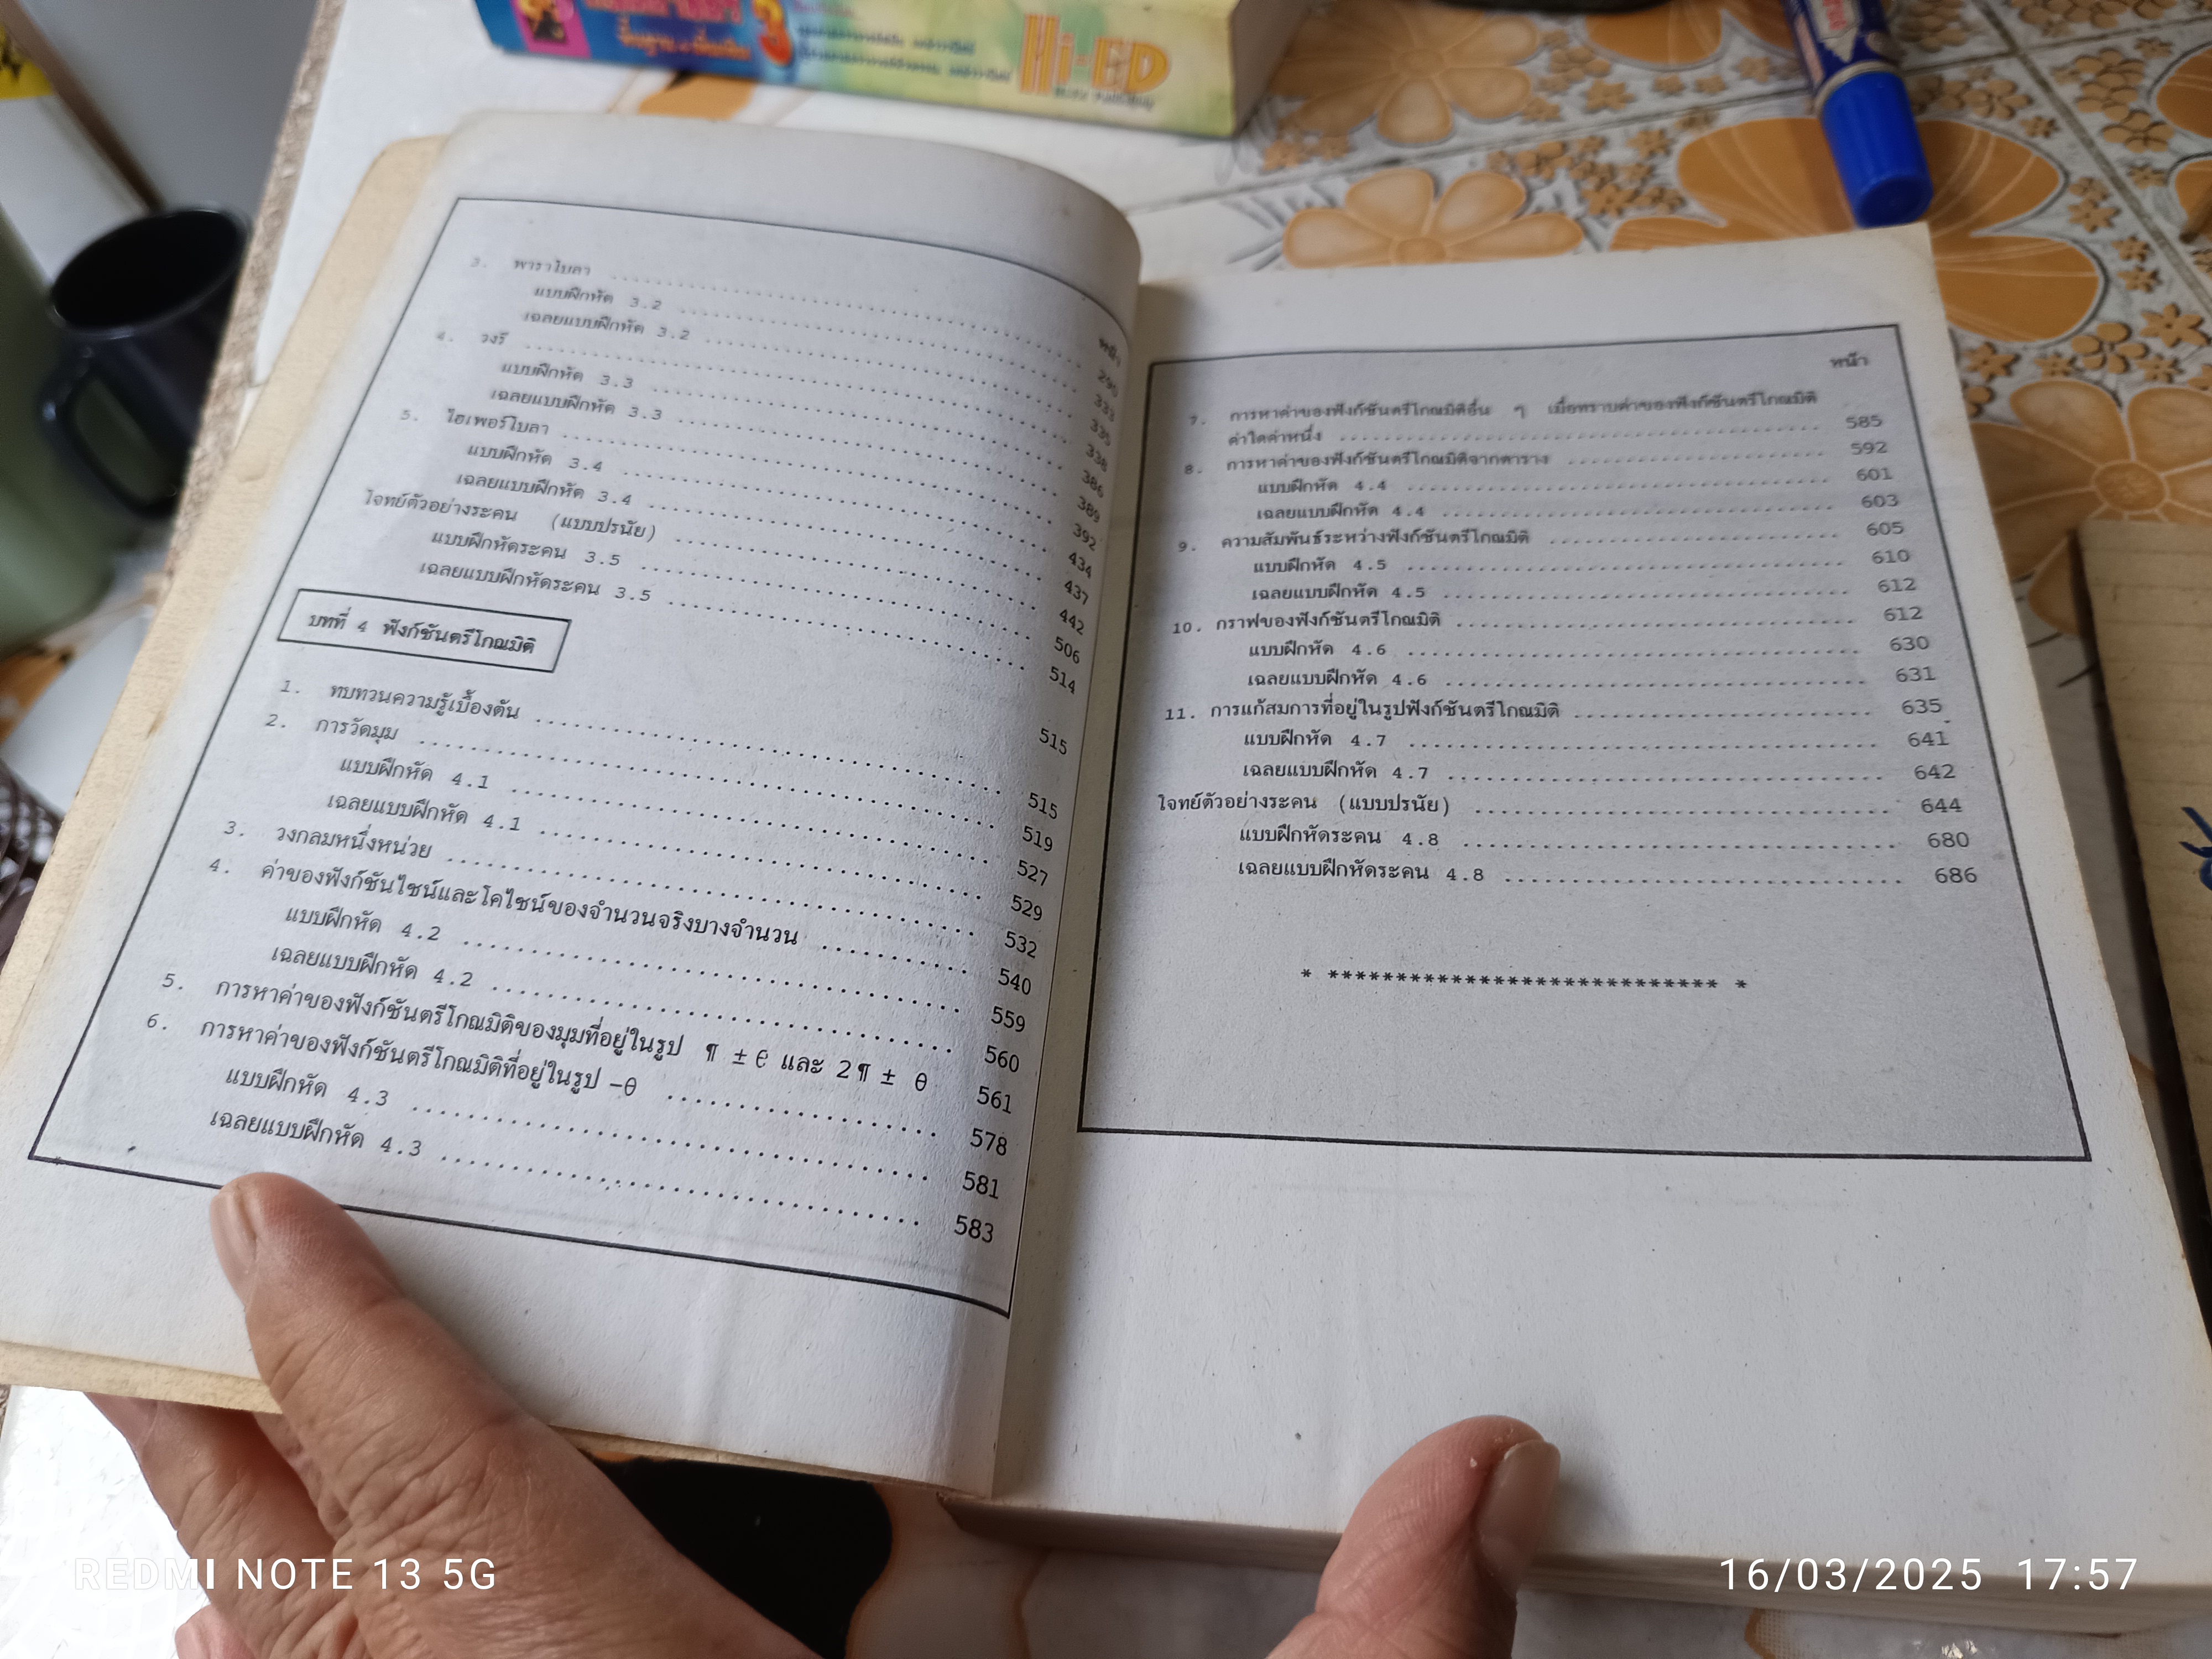 หน้า
3. พาราโบลา ........ 290
แบบฝึกหัด 3.2 ........ 333
เฉลยแบบฝึกหัด 3.2 ........ 335
4. วงรี ........ 338
แบบฝึกหัด 3.3 ........ 386
เฉลยแบบฝึกหัด 3.3 ........ 389
5. ไฮเพอร์โบลา ........ 392
แบบฝึกหัด 3.4 ........ 434
เฉลยแบบฝึกหัด 3.4 ........ 437
โจทย์ตัวอย่างระคน (แบบปรนัย) ........ 442
แบบฝึกหัดระคน 3.5 ........ 506
เฉลยแบบฝึกหัดระคน 3.5 ........ 514
บทที่ 4 ฟังก์ชันตรีโกณมิติ 515
1. ทบทวนความรู้เบื้องต้น ........ 515
2. การวัดมุม ........ 519
แบบฝึกหัด 4.1 ........ 527
เฉลยแบบฝึกหัด 4.1 ........ 529
3. วงกลมหนึ่งหน่วย ........ 532
4. ค่าของฟังก์ชันไซน์และโคไซน์ของจำนวนจริงบางจำนวน ........ 540
แบบฝึกหัด 4.2 ........ 559
เฉลยแบบฝึกหัด 4.2 ........ 560
5. การหาค่าของฟังก์ชันตรีโกณมิติของมุมที่อยู่ในรูป ¶ ± θ และ 2¶ ± θ 561
6. การหาค่าของฟังก์ชันตรีโกณมิติที่อยู่ในรูป -θ ........ 578
แบบฝึกหัด 4.3 ........ 581
เฉลยแบบฝึกหัด 4.3 ........ 583
หน้า
7. การหาค่าของฟังก์ชันตรีโกณมิติอื่น ๆ เมื่อทราบค่าของฟังก์ชันตรีโกณมิติ
ค่าใดค่าหนึ่ง ........ 585
8. การหาค่าของฟังก์ชันตรีโกณมิติจากตาราง ........ 592
แบบฝึกหัด 4.4 ........ 601
เฉลยแบบฝึกหัด 4.4 ........ 603
9. ความสัมพันธ์ระหว่างฟังก์ชันตรีโกณมิติ ........ 605
แบบฝึกหัด 4.5 ........ 610
เฉลยแบบฝึกหัด 4.5 ........ 612
10. กราฟของฟังก์ชันตรีโกณมิติ ........ 612
แบบฝึกหัด 4.6 ........ 630
เฉลยแบบฝึกหัด 4.6 ........ 631
11. การแก้สมการที่อยู่ในรูปฟังก์ชันตรีโกณมิติ ........ 635
แบบฝึกหัด 4.7 ........ 641
เฉลยแบบฝึกหัด 4.7 ........ 642
โจทย์ตัวอย่างระคน (แบบปรนัย) ........ 644
แบบฝึกหัดระคน 4.8 ........ 680
เฉลยแบบฝึกหัดระคน 4.8 ........ 686
* ***************************** *
3
Hi-ED
REDMI NOTE 13 5G
16/03/2025 17:57